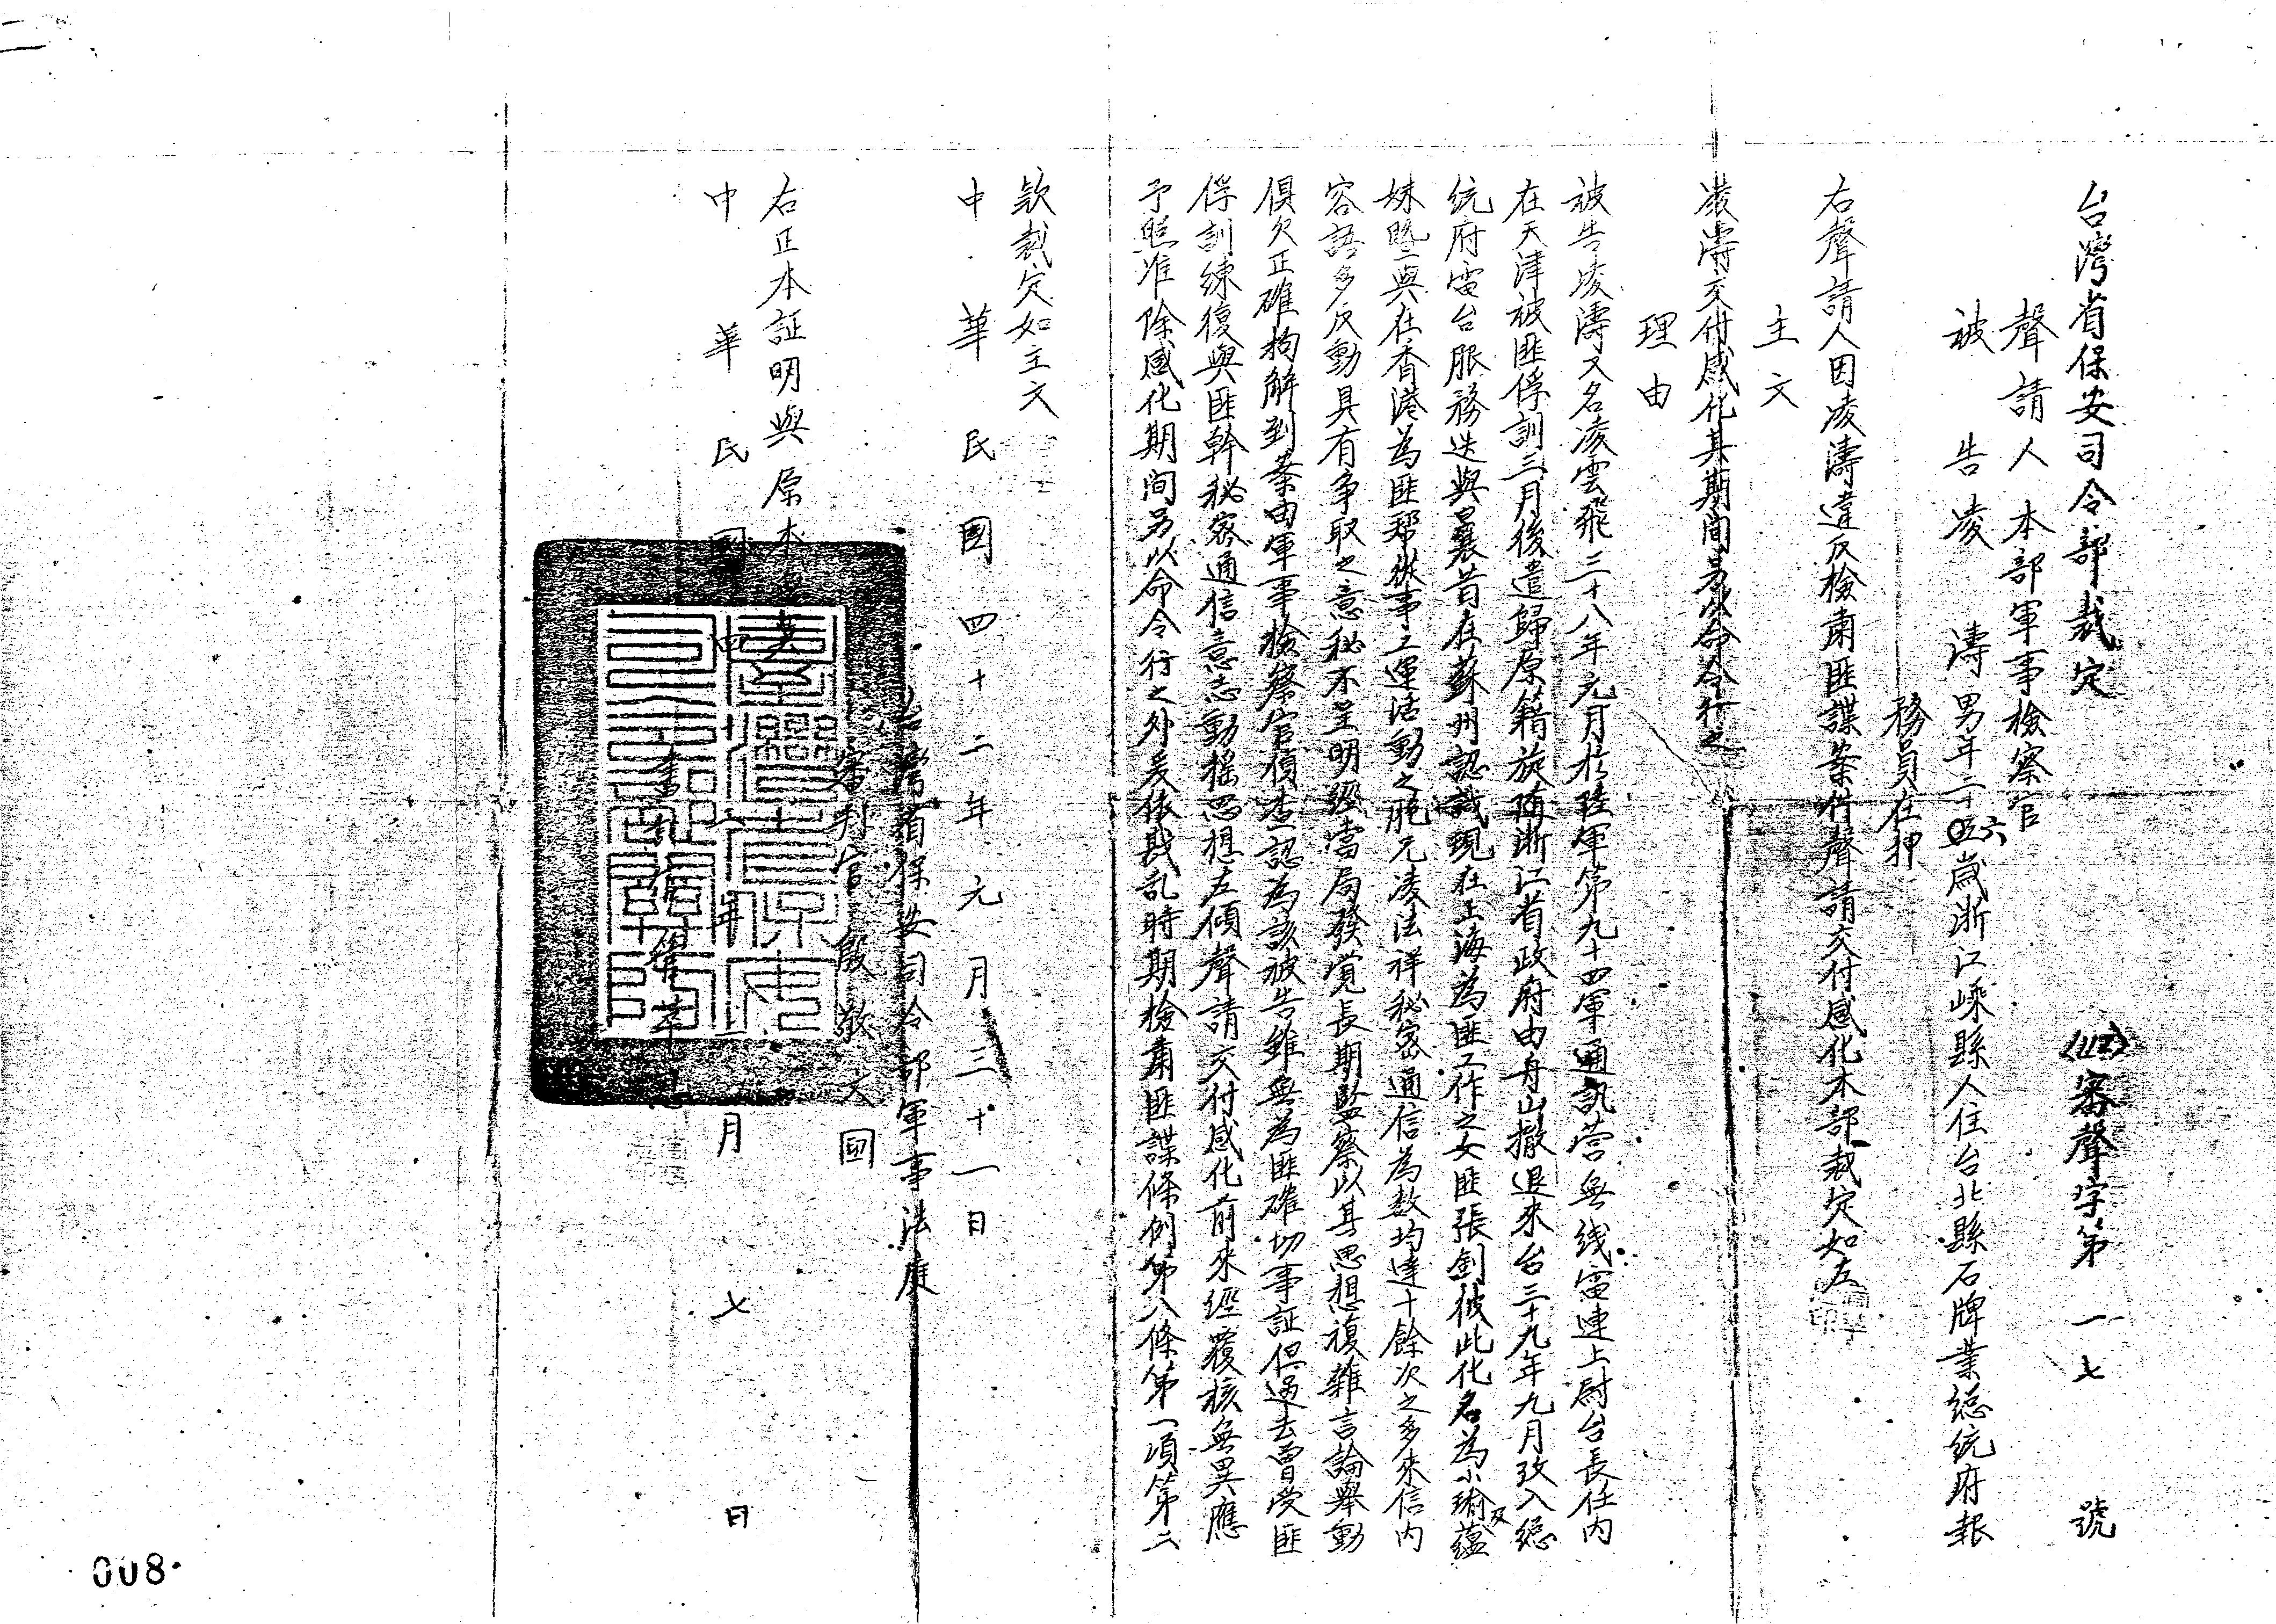 台灣省保安司令部裁定 (42)審聲字第一七號
聲請人 本部軍事檢察官
被告 凌濤 男年二十六歲浙江嵊縣人住台北縣石牌業總統府報
務員在押
右聲請人因凌濤違反檢肅匪諜案件聲請交付感化本部裁定如左
主文
凌濤交付感化其期間另以命令行之
理由
被告凌濤又名凌雲飛三十八年元月於陸軍第九十四軍通訊營無线電連上尉台長任內
在天津被匪俘訓三月後遣歸原籍旋隨浙江省政府由舟山撤退來台三十九年九月攷入總
統府電台服務迭與曩昔在蘇州認識現在上海為匪工作之女匪張劍彼此化名為小瑜及蘊
妹暨與在香港為匪幫從事工運活動之胞兄凌法祥秘密通信為数均達十餘次之多來信內
容語多反動具有争取之意秘不呈明經當局發覺長期監察以其思想複雜言論舉動
俱欠正確拘解到案由軍事檢察官偵查認為該被告雖無為匪確切事証但過去曾受匪
俘訓練復與匪幹秘密通信意志動摇思想左傾聲請交付感化前來經覆核無異應
予照准除感化期间另以命令行之外爰依戡乱時期檢肅匪諜條例第八條第一項第二
款裁定如主文
中華民國四十二年元月三十一日
台灣省保安司令部軍事法庭
審判官 殷敬文
右正本証明與原本無異
書記官
中華民國四十二年二月七日
008